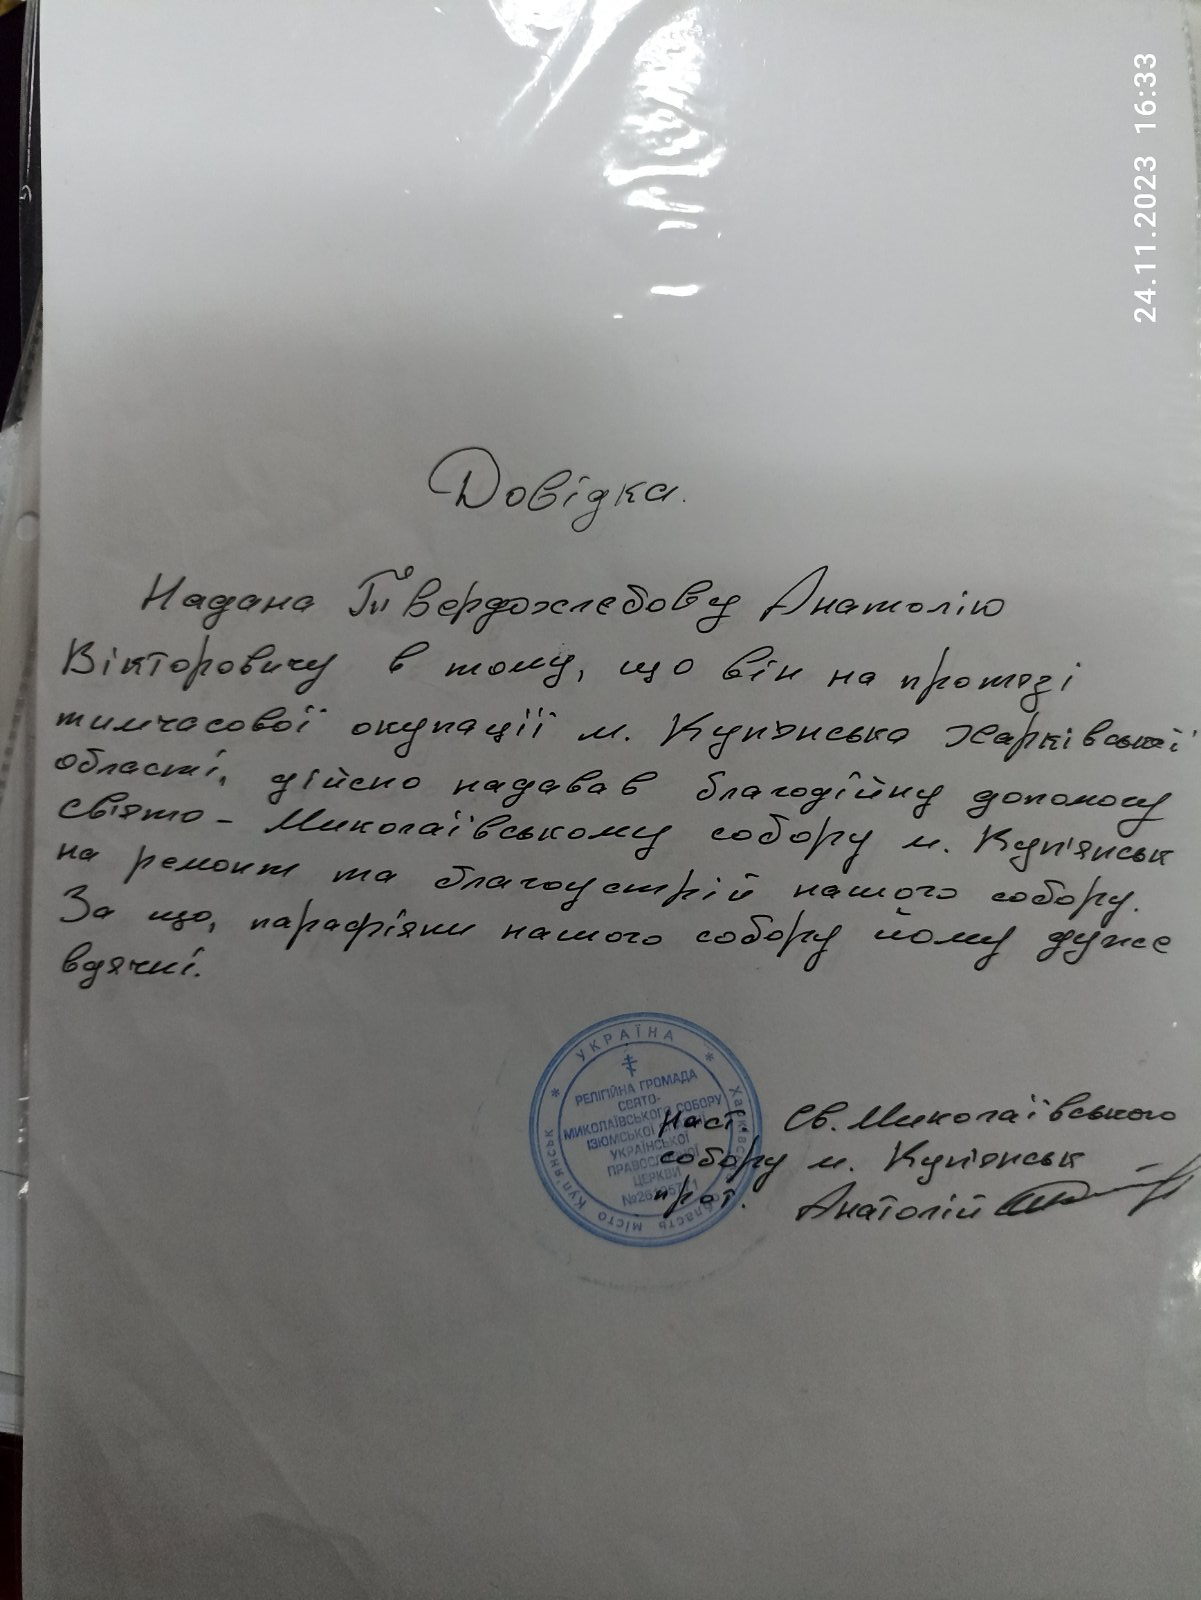 24.11.2023 16:33
Довідка.
Надана Твердохлебову Анатолію
Вікторовичу в тому, що він на протязі
тимчасової окупації м. Куп'янська Харківської
області, дійсно надавав благодійну допомогу
Свято-Миколаївському собору м. Куп'янськ
на ремонт та благоустрій нашого собору.
За що, парафіяни нашого собору йому дуже
вдячні.
Наст. Св. Миколаївського
собору м. Куп'янськ
прот. Анатолій
* УКРАЇНА *
Харківська область місто Куп'янськ
РЕЛІГІЙНА ГРОМАДА
СВЯТО-
МИКОЛАЇВСЬКОГО СОБОРУ
ІЗЮМСЬКОЇ
УКРАЇНСЬКОЇ
ПРАВОСЛАВНОЇ
ЦЕРКВИ